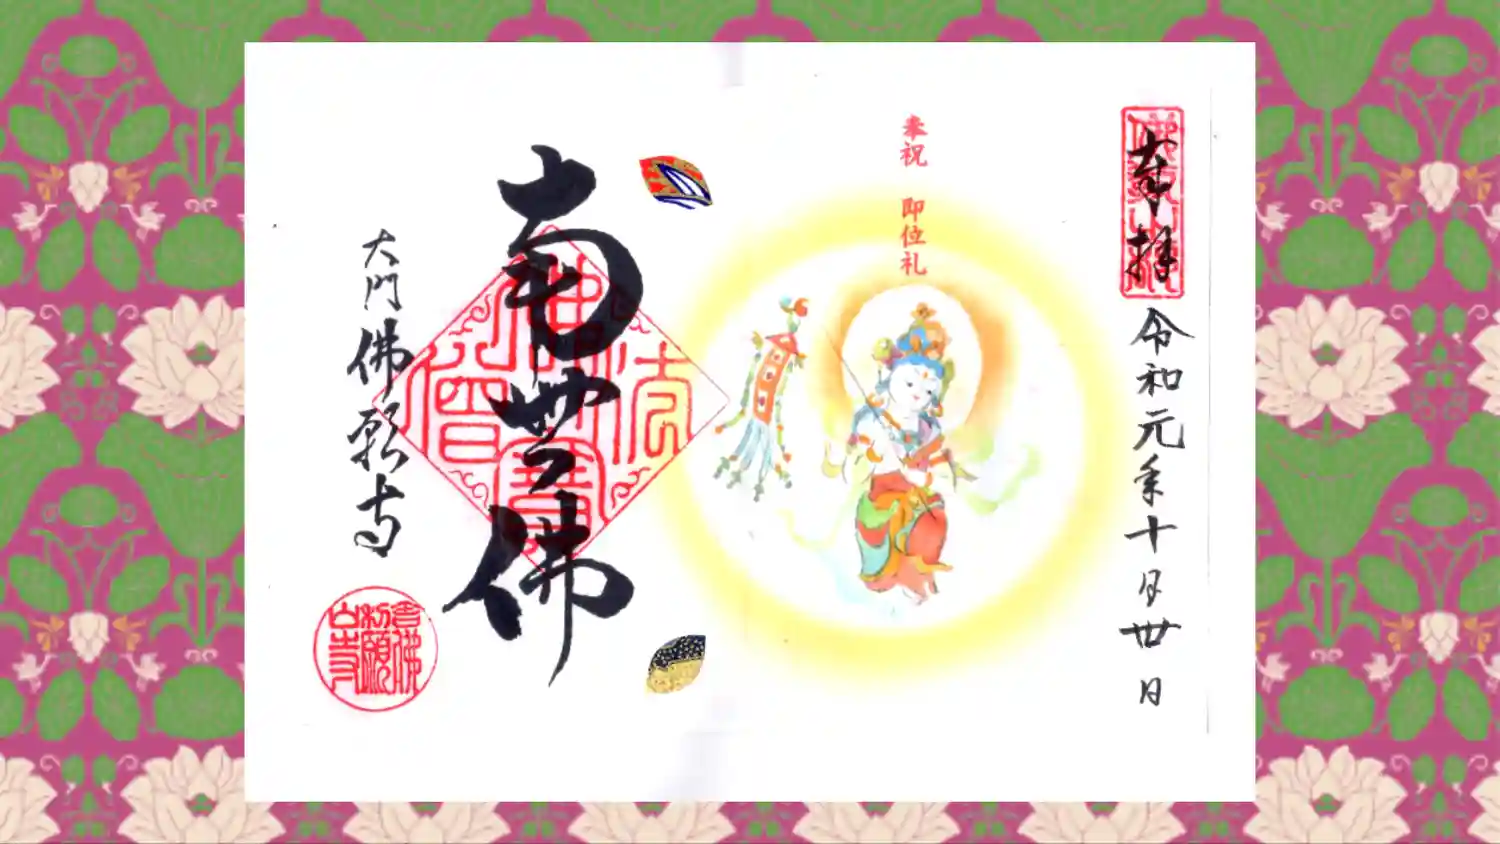 奉拝
令和元年十月廿日
奉祝 即位礼
南無佛
佛法僧寶
大門佛願寺